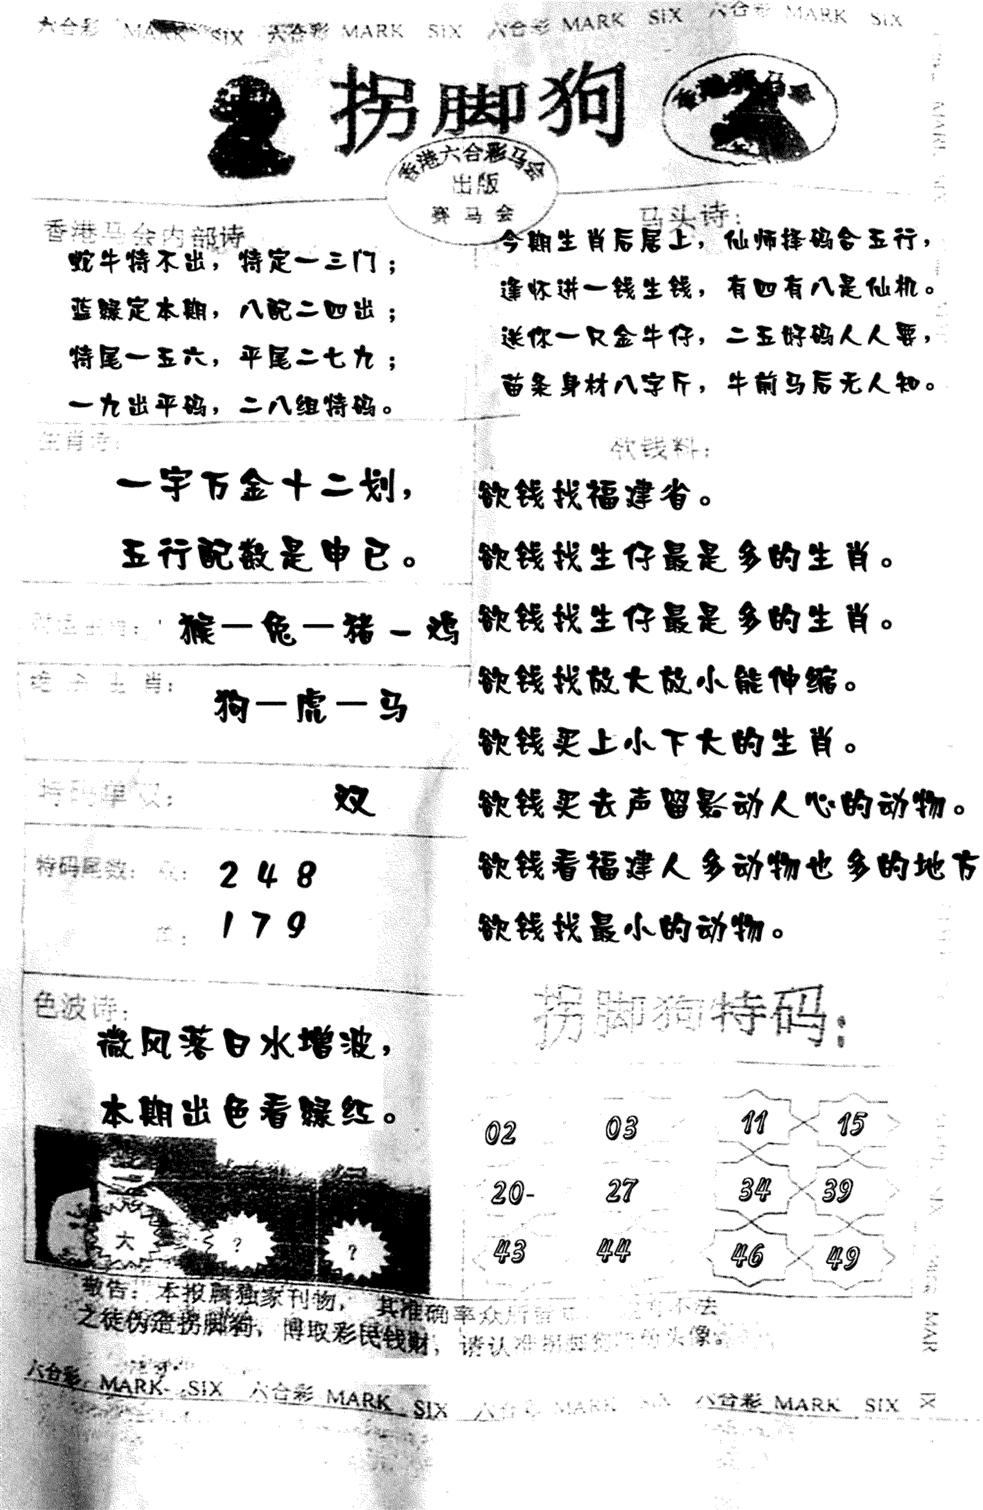 六合彩 MARK SIX 六合彩 MARK SIX 六合彩 MARK SIX 六合彩 MARK SIX
拐脚狗
香港赛马会
香港六合彩马会
出版
赛马会
香港马会内部诗
蛇牛特不出，特定一三门；
蓝绿定本期，八配二四出；
特尾一五六，平尾二七九；
一九出平码，二八组特码。
马头诗：
今期生肖后居上，仙师择码合五行，
逢怀进一钱生钱，有四有八是仙机。
送你一只金牛仔，二五好码人人要，
苗条身材八字斤，牛前马后无人知。
生肖诗：
一字万金十二划，
五行配数是申已。
猴一兔一猪一鸡
绝杀生肖：
狗一虎一马
特码单双：
双
特码尾数：双：
2 4 8
单：
1 7 9
色波诗：
微风落日水增波，
本期出色看绿红。
大 ? ?
欲钱料：
欲钱找福建省。
欲钱找生仔最是多的生肖。
欲钱找生仔最是多的生肖。
欲钱找放大放小能伸缩。
欲钱买上小下大的生肖。
欲钱买去声留影动人心的动物。
欲钱看福建人多动物也多的地方
欲钱找最小的动物。
拐脚狗特码：
02 03 11 15
20- 27 34 39
43 44 46 49
敬告：本报属独家刊物，其准确率众所皆 不法
之徒伪造拐脚狗，博取彩民钱财，请认准拐脚狗 的头像
六合彩 MARK SIX 六合彩 MARK SIX 六合彩 MARK SIX 六合彩 MARK SIX